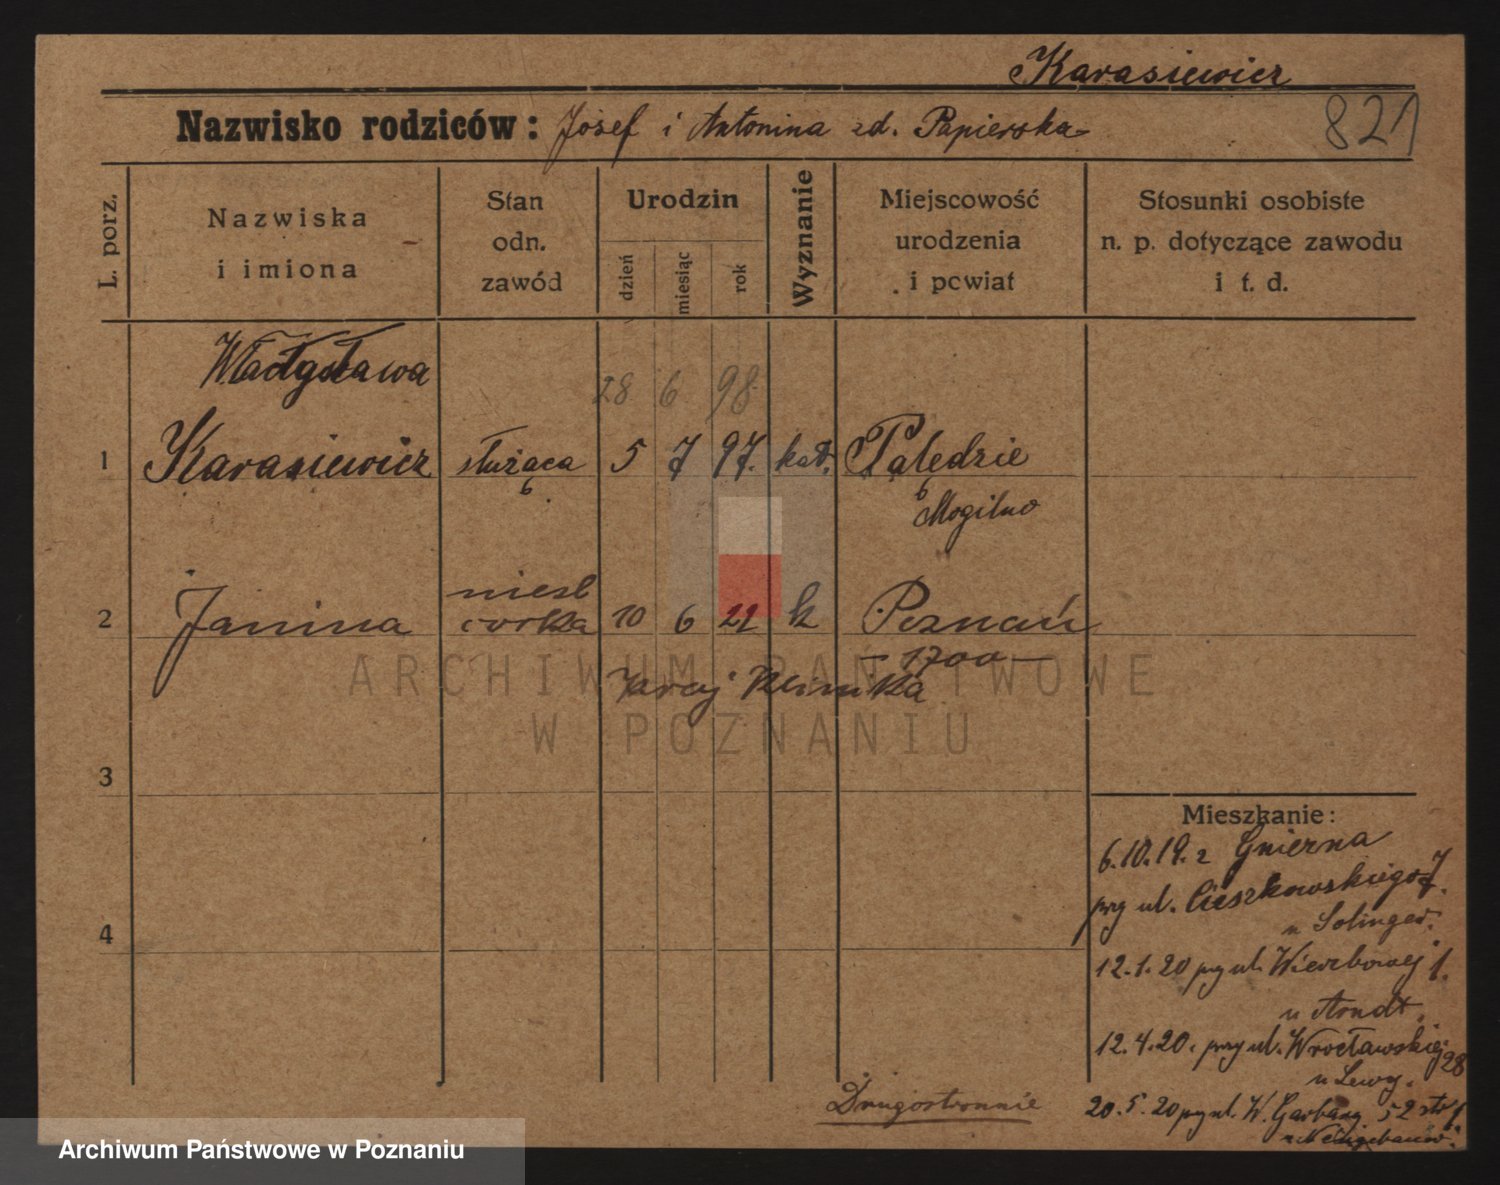 Karasiewicz
Nazwisko rodziców: Józef i Antonina zd. Papierska
821
L. porz.
Nazwiska
i imiona
Stan
odn.
zawód
Urodzin
dzień
miesiąc
rok
Wyznanie
Miejscowość
urodzenia
i powiat
Stosunki osobiste
n. p. dotyczące zawodu
i t. d.
Władysława
28 6 98
1 Karasiewicz służąca 5 7 97. kat. Palędzie
Mogilno
nieśl
2 Janina córka 10 6 21 k Poznań
— 1700 —
Klinika
3
4
Mieszkanie:
6.10.19. z Gniezna
przy ul. Cieszkowskiego 7.
u Solinger.
12.1.20 przy ul. Wierzbowej 1.
u Arndt.
12.4.20. przy ul. Wrocławskiej 28
u Lewy.
20.5.20 przy ul. W. Garbary 52
Drugostronnie
ARCHIWUM PAŃSTWOWE
W POZNANIU
Archiwum Państwowe w Poznaniu